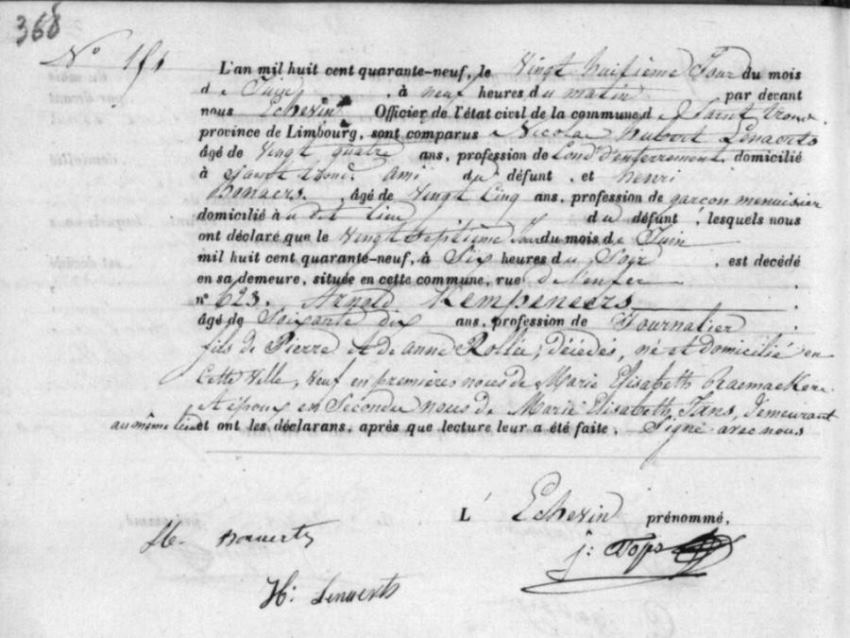 368
N° 151
L'an mil huit cent quarante-neuf, le Vingt huitieme Jour du mois
de Juin, à neuf heures du matin par devant
nous Echevin Officier de l'état civil de la commune de Saint trond
province de Limbourg, sont comparus Nicolas hubert Lenaerts
âgé de Vingt quatre ans, profession de d'enterrement, domicilié
à Saint trond, ami du défunt, et henri
âgé de Vingt Cinq ans, profession de garçon menuisier
domicilié à u dit lieu du défunt, lesquels nous
ont déclaré que le Vingt Septième Jour du mois de Juin
mil huit cent quarante-neuf, à Six heures du Soir, est décédé
en sa demeure, située en cette commune, rue de l'enfer
n° 623. Arnold Kempeneers
âgé de Soixante dix ans, profession de Journalier
fils de Pierre et de anne, décédés, né et domicilié en
Cette Ville, Veuf en premières noces de Marie Elisabeth Raemaekers
et époux en Secondes noces de Marie Elisabeth Jans, demeurant
au même lieu et ont les déclarans, après que lecture leur a été faite, Signé avec nous
L' Echevin prénommé,
H: Lenaerts